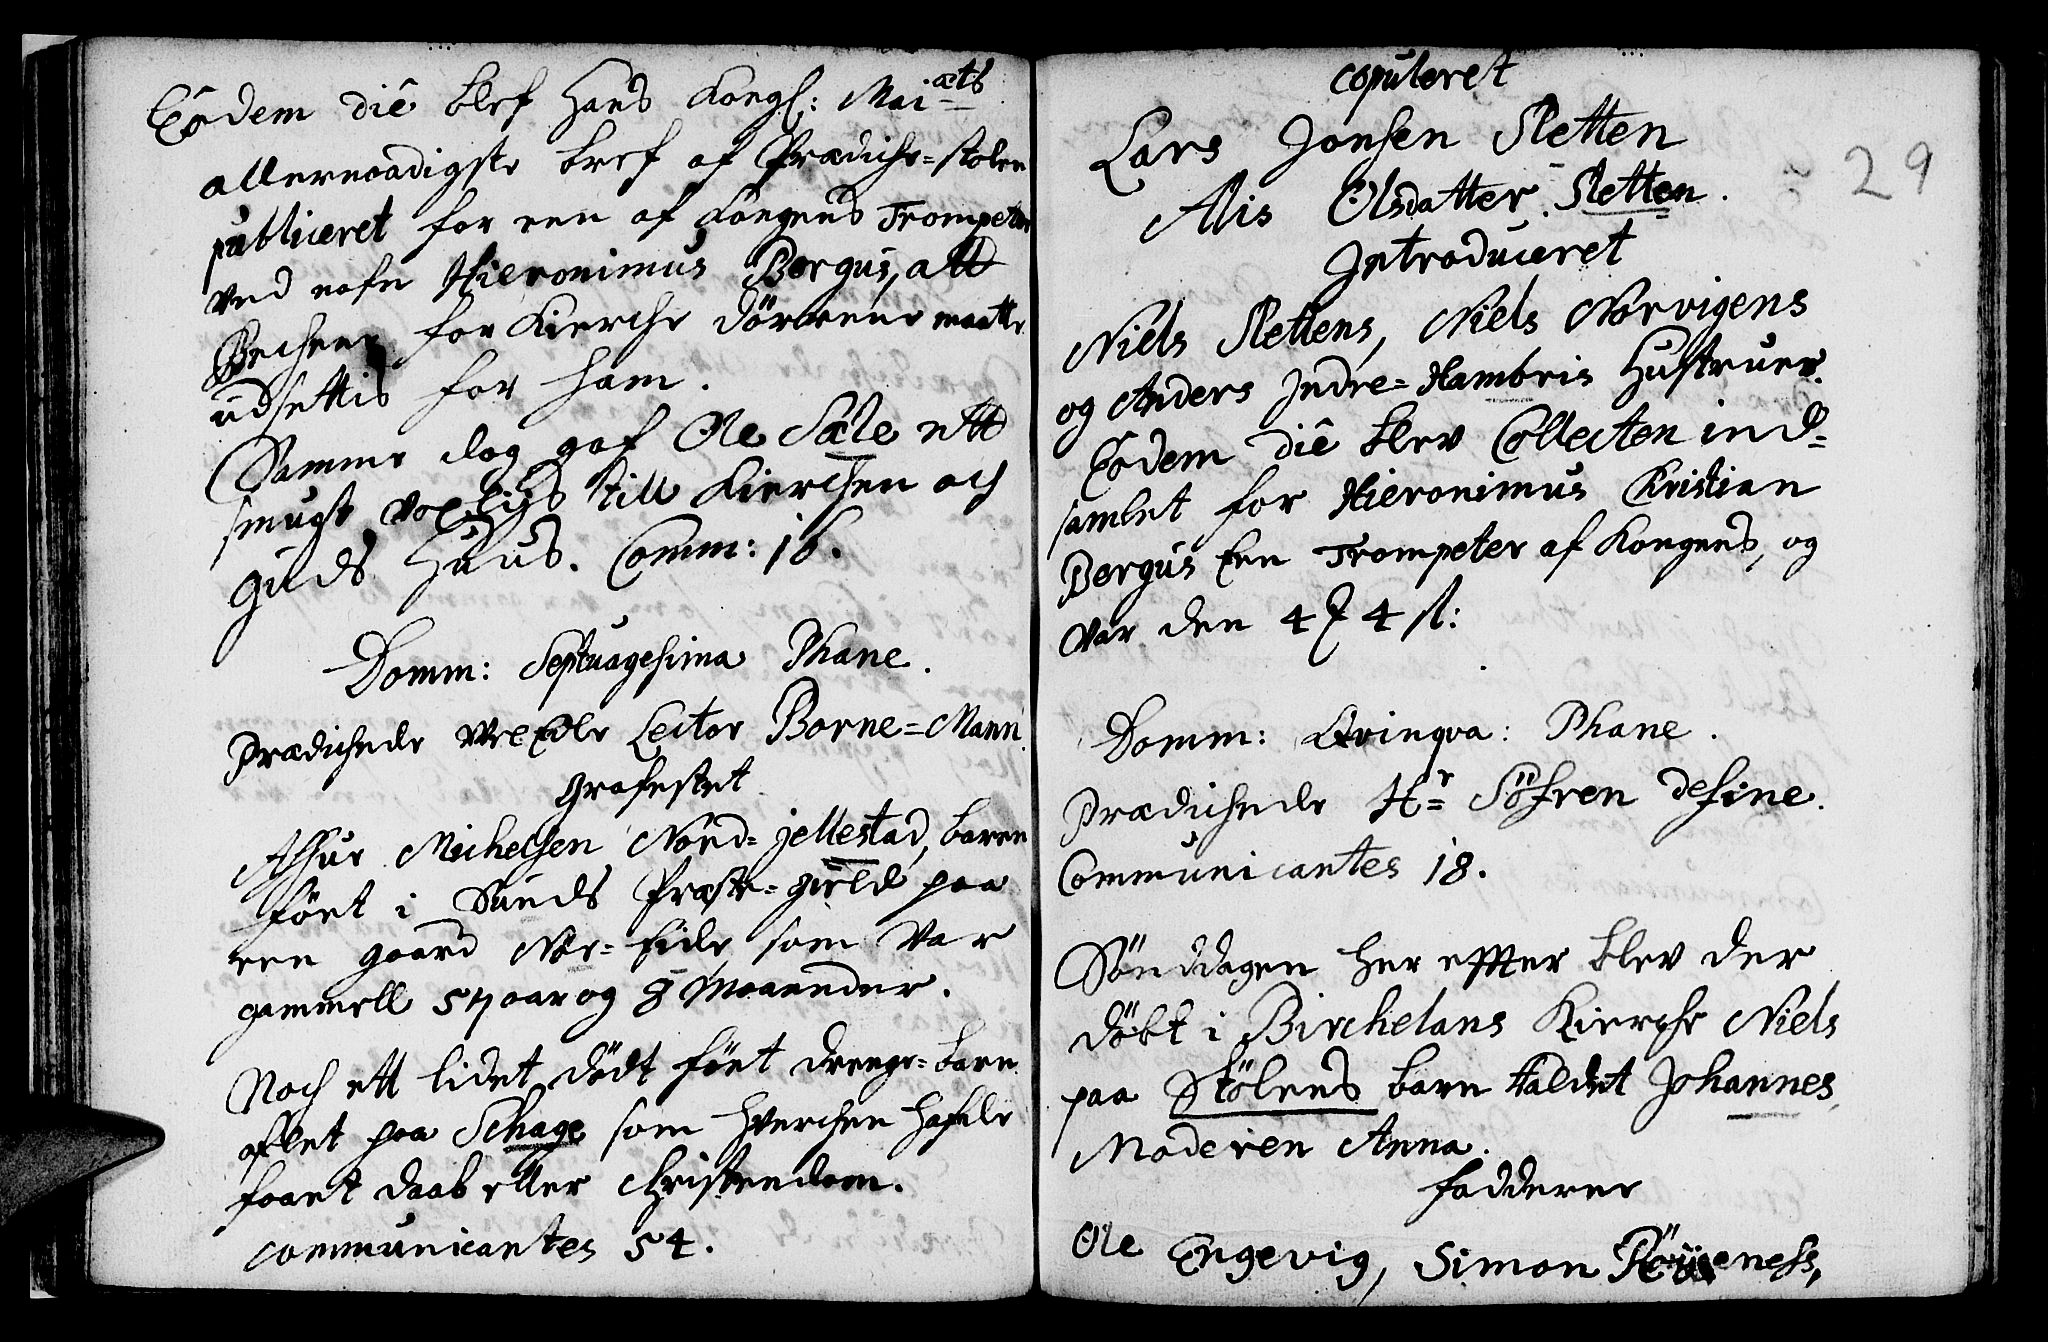 Eodem die blef Hans Kongl: Mai=æts
allernaadigste bref af Prædiche=stolen
publiceret for een af Kongens Trompeter
ved nafn Hieronimus Bergus, att
Bechener for Kierche dörrene maatte
udsettis for ham.
Samme dag gaf Ole Sæle ett
smugt voxliys till Kierchen och
Guds Huus. Comm: 16.
Domm: Septuagesima Phane.
Prædichede VelEdle Lector Borne=Mann
Grafestet
Assur Michelsen Nord=jellestad, baren
föet i Sunds Præste=gield paa
een gaard Nor=Eide som var
gammell 57 aar og 8 Maaneder.
Noch ett lidet dödt föet drenge=barn
aflet paa Schage som hverchen hafde
faaet daab eller Christendom.
communicantes 54.
copuleret
29
Lars Jonsen Sletten
Alis Olsdatter Sletten.
Introduceret
Niels Slettens, Niels Norvigens
og Anders Indre=Hambris Hustruer.
Eodem die blev Collecten ind=
samlet for Hieronimus Kristian
Bergus Een Trompeter af Kongens, og
var den 4 ₰ 4 sl:
Domm: Qvinqva: Phane.
Prædichede Hr= Söfren define.
Communicantes 18.
Sönddagen her effter blev der
döbt i Birchelans Kierche Niels
paa Stölens barn kaldet Johannes,
Moderen Anna.
Fadderne
Ole Engevig, Simon